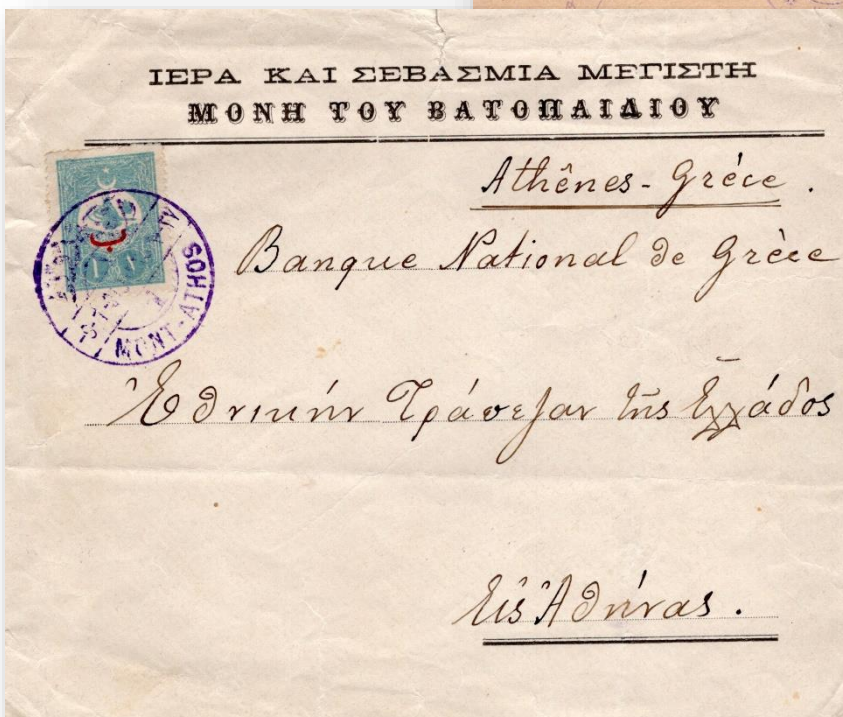 ΙΕΡΑ ΚΑΙ ΣΕΒΑΣΜΙΑ ΜΕΓΙΣΤΗ
ΜΟΝΗ ΤΟΥ ΒΑΤΟΠΑΙΔΙΟΥ
Athênes - Grèce.
Banque National de Grèce
MONT-ATHOS
Ἐθνικήν Τράπεζαν τῆς Ἑλλάδος
Εἰς Ἀθήνας.